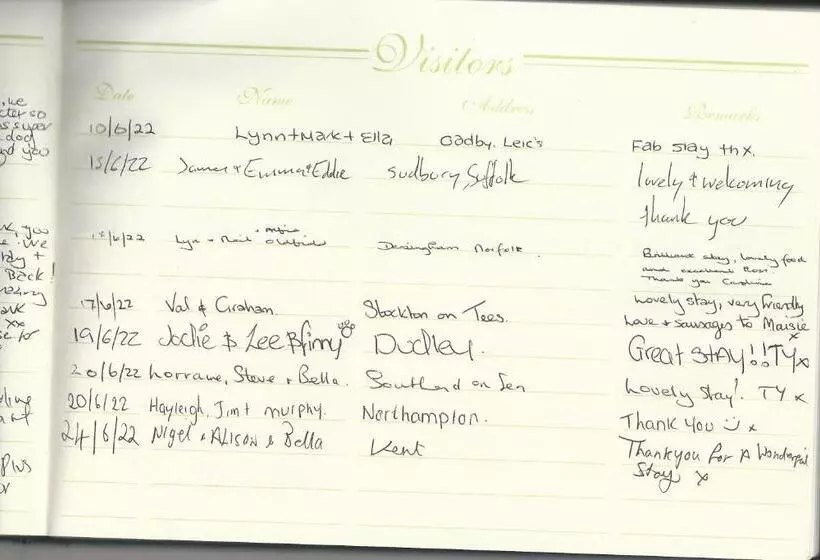 Visitors
Date Name Address Remarks
10/6/22 Lynn + Mark + Ella Oadby. Leic's Fab stay thx.
15/6/22 James + Emma + Eddie Sudbury, Suffolk lovely + welcoming
thank you
/6/22 Lyn + Dersingham Norfolk. Brilliant stay, lovely food
and excellent host.
Thank you Caroline
17/6/22 Val & Graham. Stockton on Tees. Lovely stay, very friendly
Love + sausages to Maisie
x
19/6/22 Jodie & Lee & finny Dudley. Great STAY!! TYx
20/6/22 Lorraine, Steve + Bella. Southend on Sea Lovely Stay! TY x
20/6/22 Hayleigh, Jim + murphy. Northampton. Thank you x
24/6/22 Nigel & ALISON & Bella Kent Thankyou for A Wonderful
Stay x
we
so
super
dog
and you
you
We
stay +
Back!
xx
Plus
or